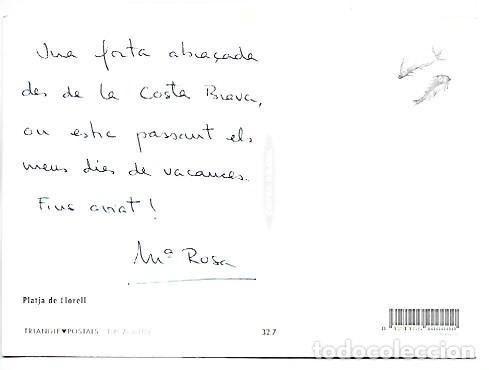 Una forta abraçada
des de la Costa Brava,
on estic passant els
meus dies de vacances.
Fins aviat!
Mª Rosa
Platja de Llorell
TRIANGLE♥POSTALS
32.7
todocoleccion